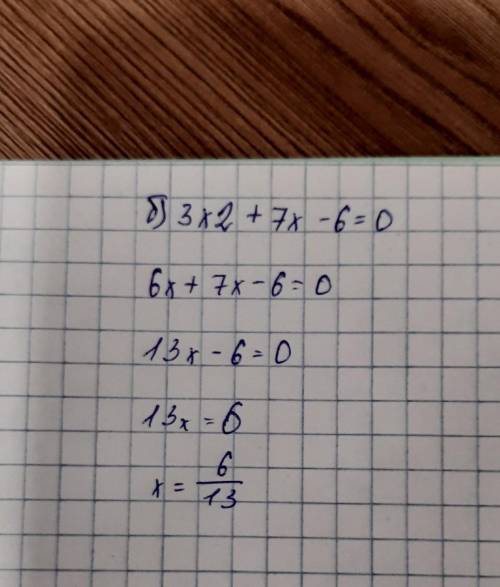 б) 3x2 + 7x - 6 = 0
6x + 7x - 6 = 0
13x - 6 = 0
13x = 6
x = 6/13